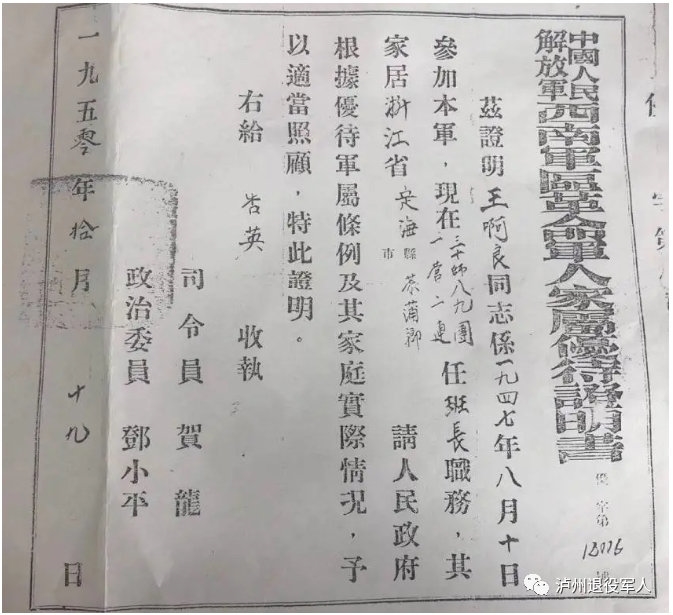 中國人民
解放軍
西南軍區革命軍人家屬優待證明書
字第
茲證明王啊良同志係一九四七年八月十日
參加本軍，現在三十師八九團一營二連任班長職務，其
家居浙江省定海縣市鄉請人民政府
根據優待軍屬條例及其家庭實際情況，予
以適當照顧，特此證明。
右給 杏英 收執
司令員 賀龍
政治委員 鄧小平
一九五零年拾月十九日
泸州退役军人